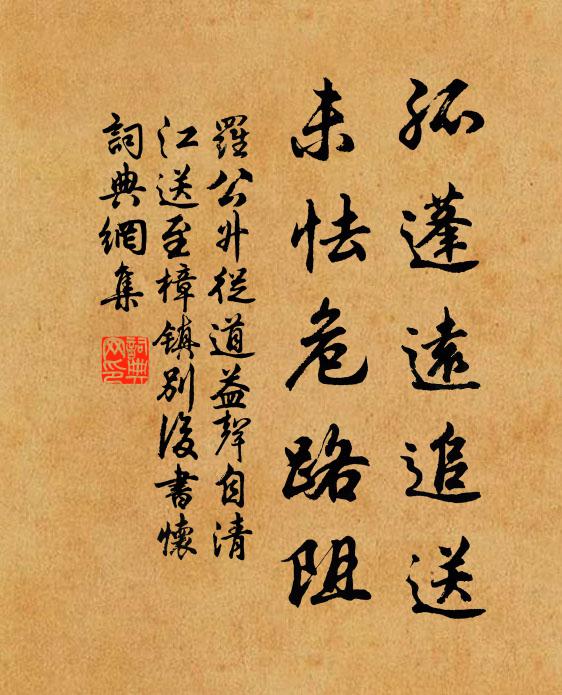 孤蓬遠追送
未怯危路阻
羅公升從道益聲自清
江送至樟鎮別後書懷
詞典網集
詞典网印